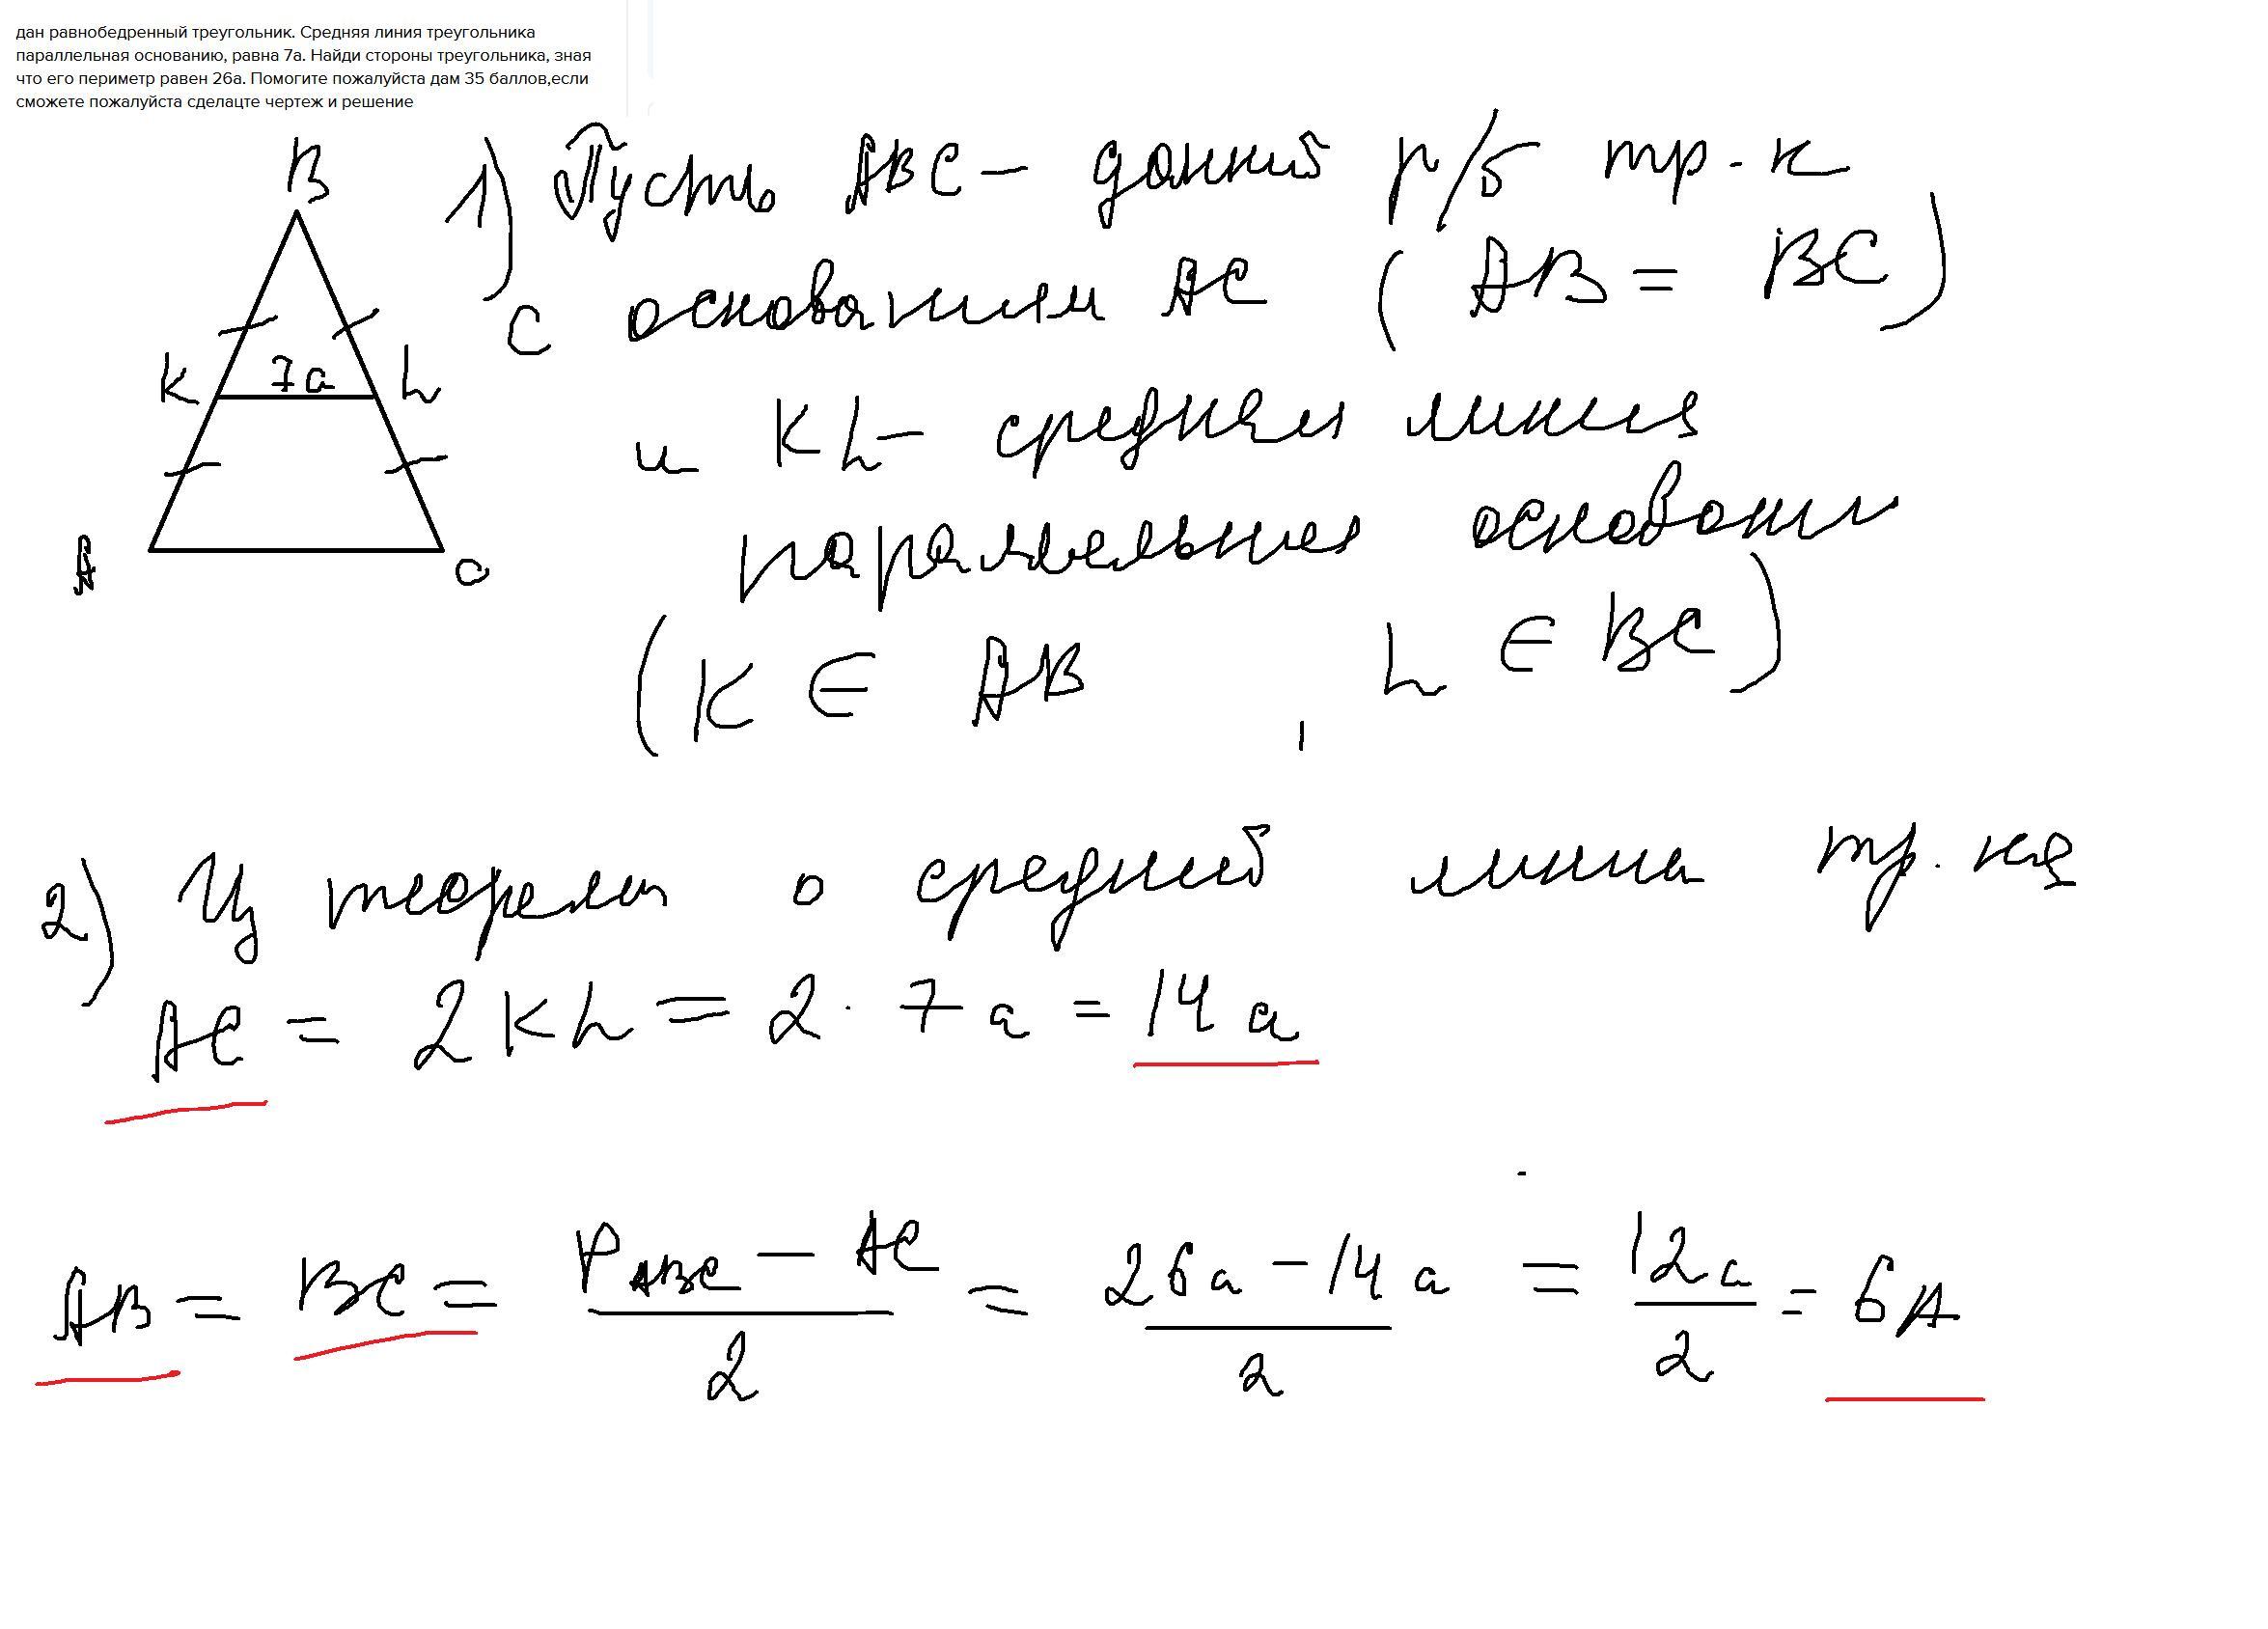 дан равнобедренный треугольник. Средняя линия треугольника
параллельная основанию, равна 7а. Найди стороны треугольника, зная
что его периметр равен 26а. Помогите пожалуйста дам 35 баллов,если
сможете пожалуйста сделацте чертеж и решение
B
K 7a L
A C
1) Пусть ABC - данный р/б тр-к
с основанием AC ( AB = BC )
и KL - средняя линия
параллельная основани
(K ∈ AB , L ∈ BC)
2) Из теоремы о средней линии тр.ка
AC = 2KL = 2 · 7a = 14a
AB = BC = \frac{P_{ABC} - AC}{2} = \frac{26a - 14a}{2} = \frac{12a}{2} = 6A